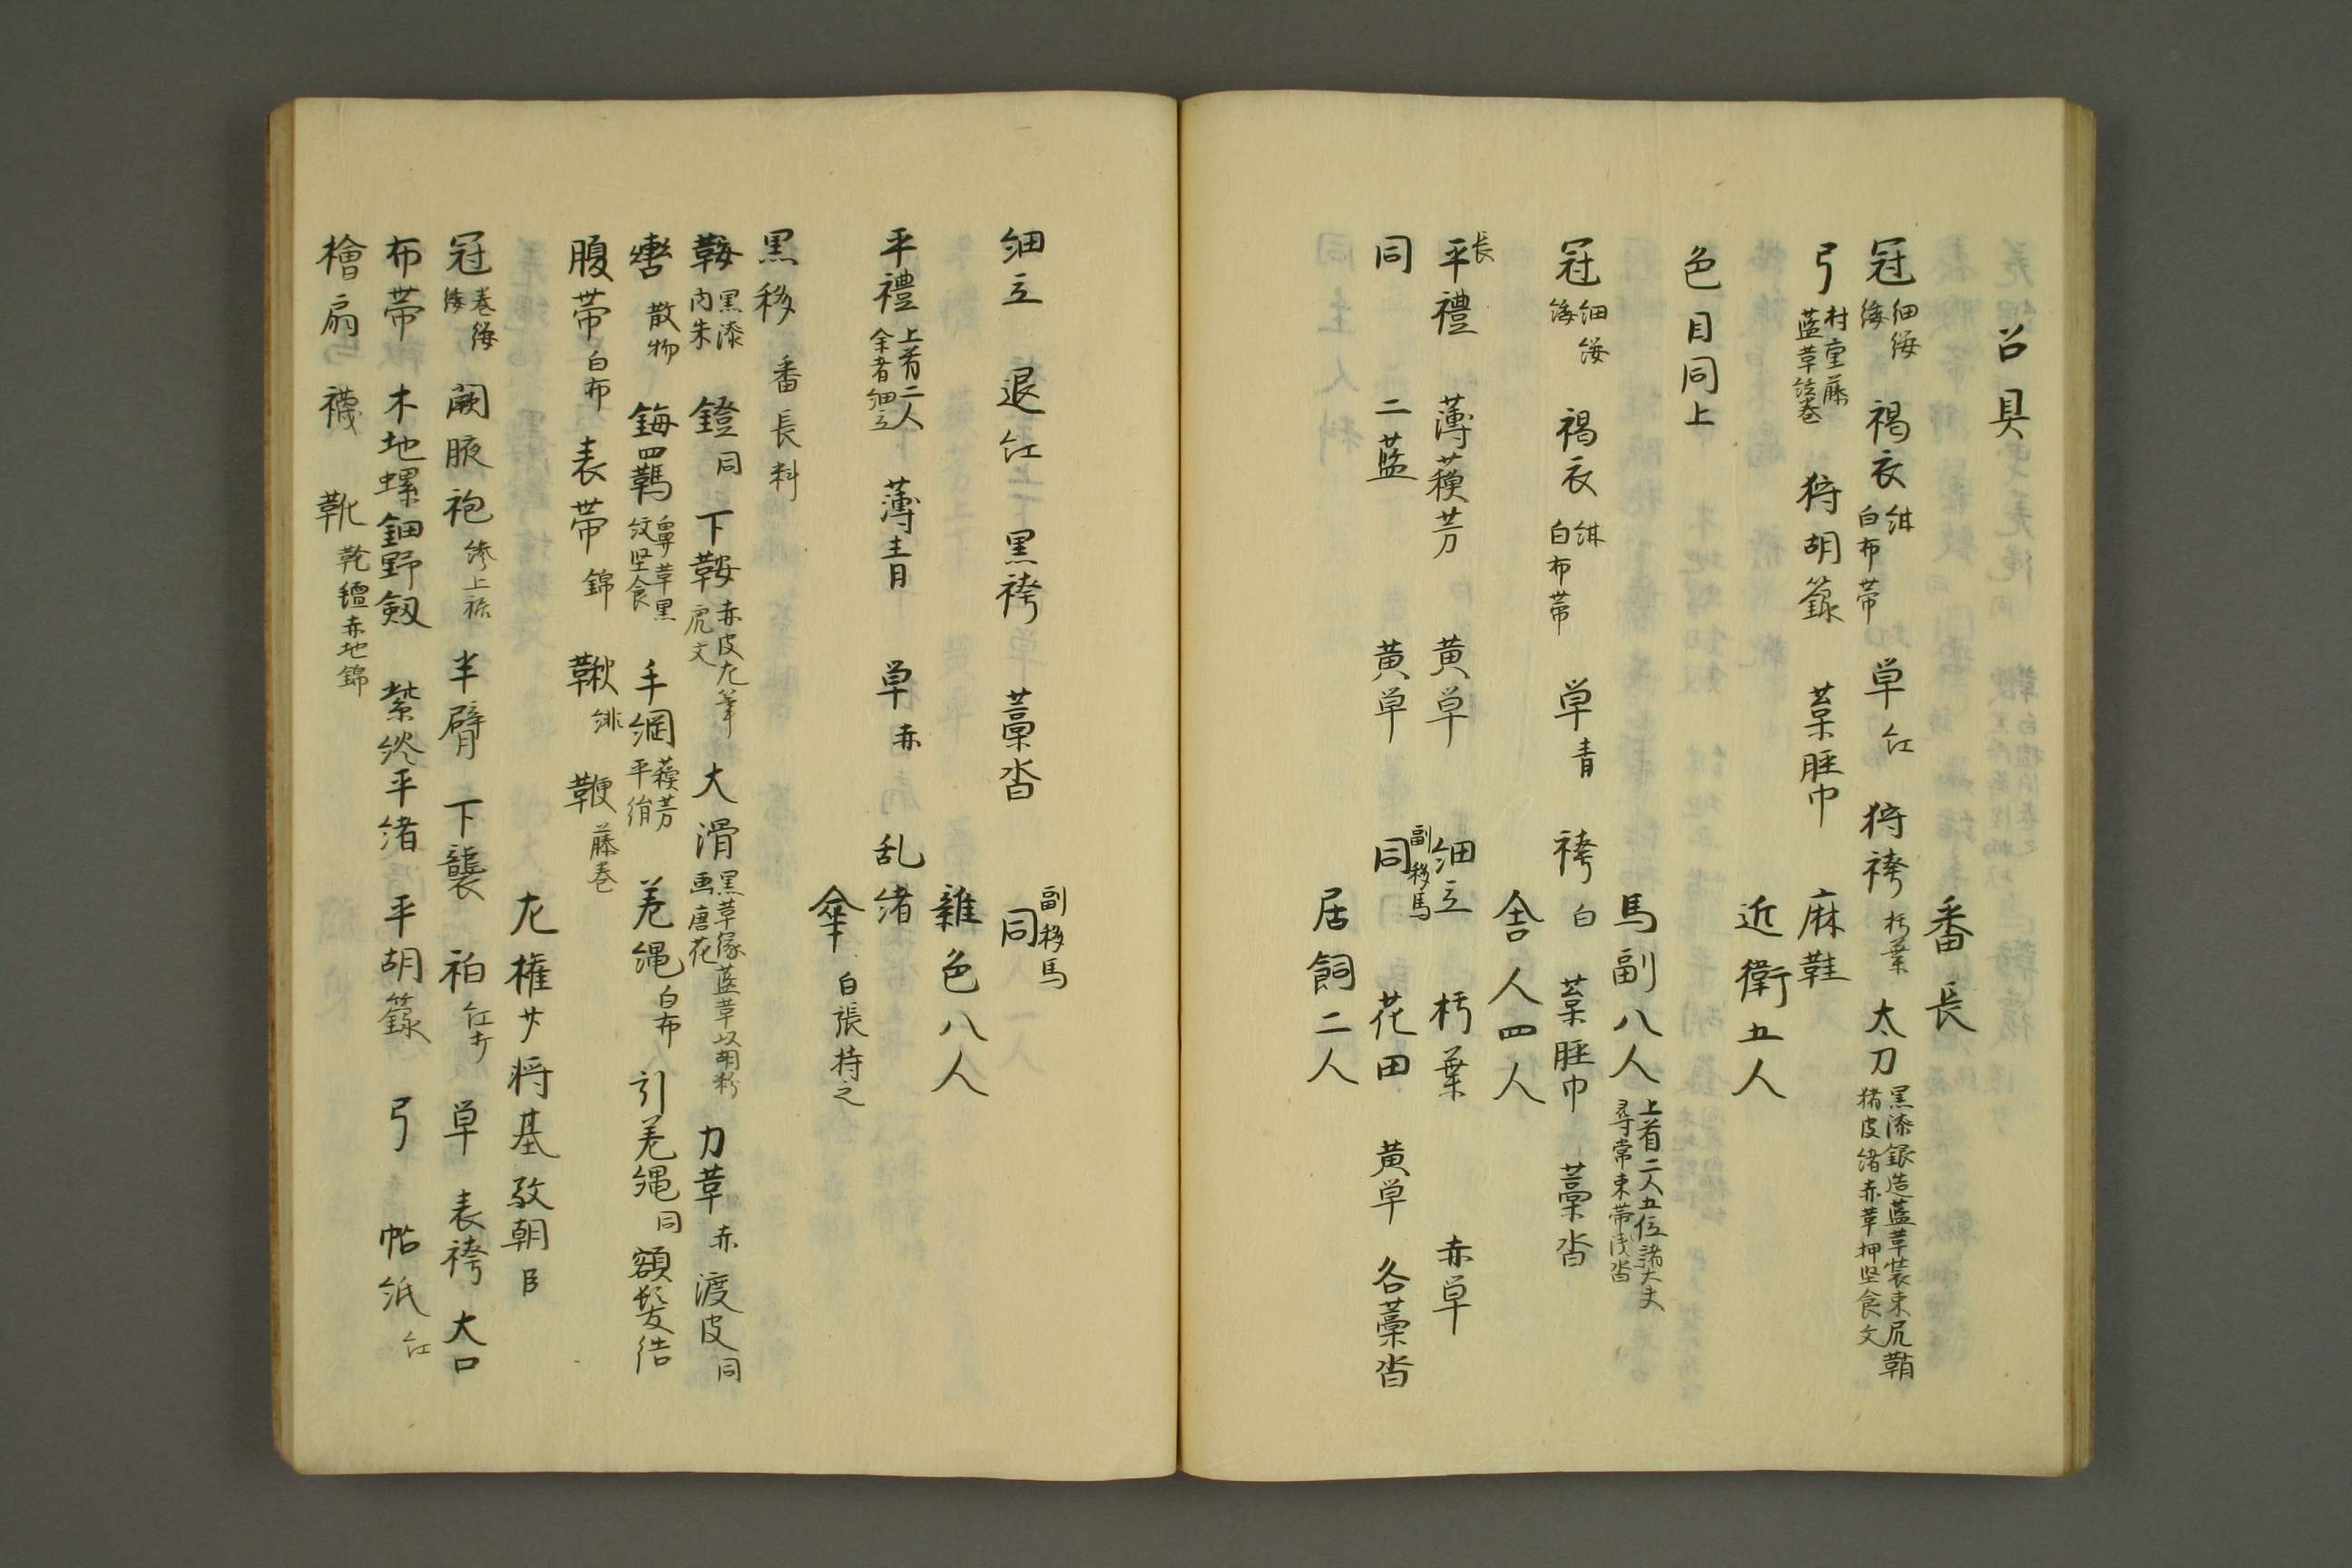 召具
番長
冠 細纓 緌 褐衣 紺 白布帯 単 紅 狩袴 朽葉 太刀 黒漆銀造藍革装束尻鞘 猪皮緒赤革押竪食文
弓 村重藤 藍革弦巻 狩胡籙 葈脛巾 麻鞋
近衛五人
色目同上
馬副八人 上首二人五位諸大夫 尋常束帯浅沓
冠 細纓 緌 褐衣 紺 白布帯 単 青 袴 白 葈脛巾 藁沓
舎人四人
長 平禮 薄蘓芳 黄単 細立 朽葉 赤単
同 二藍 黄単 副移馬 同 花田 黄単 各藁沓
居飼二人
細立 退紅 黒袴 藁沓 副移馬 同
雑色八人
平禮 上首二人 余者細立 薄青 単 赤 乱緒
傘 白張持之
黒移 番長料
鞍 黒漆 内朱 鐙 同 下鞍 赤皮尤筆 虎文 大滑 黒革縁藍革以胡粉 画唐花 力革 赤 渡皮 同
轡 散物 鋂 四鞴 鼻革黒 紋竪食 手綱 蘓芳 平絹 差縄 白布 引差縄 同 額髪結
腹帯 白布 表帯 錦 鞦 緋 鞭 藤巻
左権少将基敬朝臣
冠 巻纓 緌 闕腋袍 縫上裾 半臂 下襲 袙 紅打 単 表袴 大口
布帯 木地螺鈿野剱 紫紾平緒 平胡籙 弓 帖紙 紅
檜扇 襪 靴 靴氈赤地錦